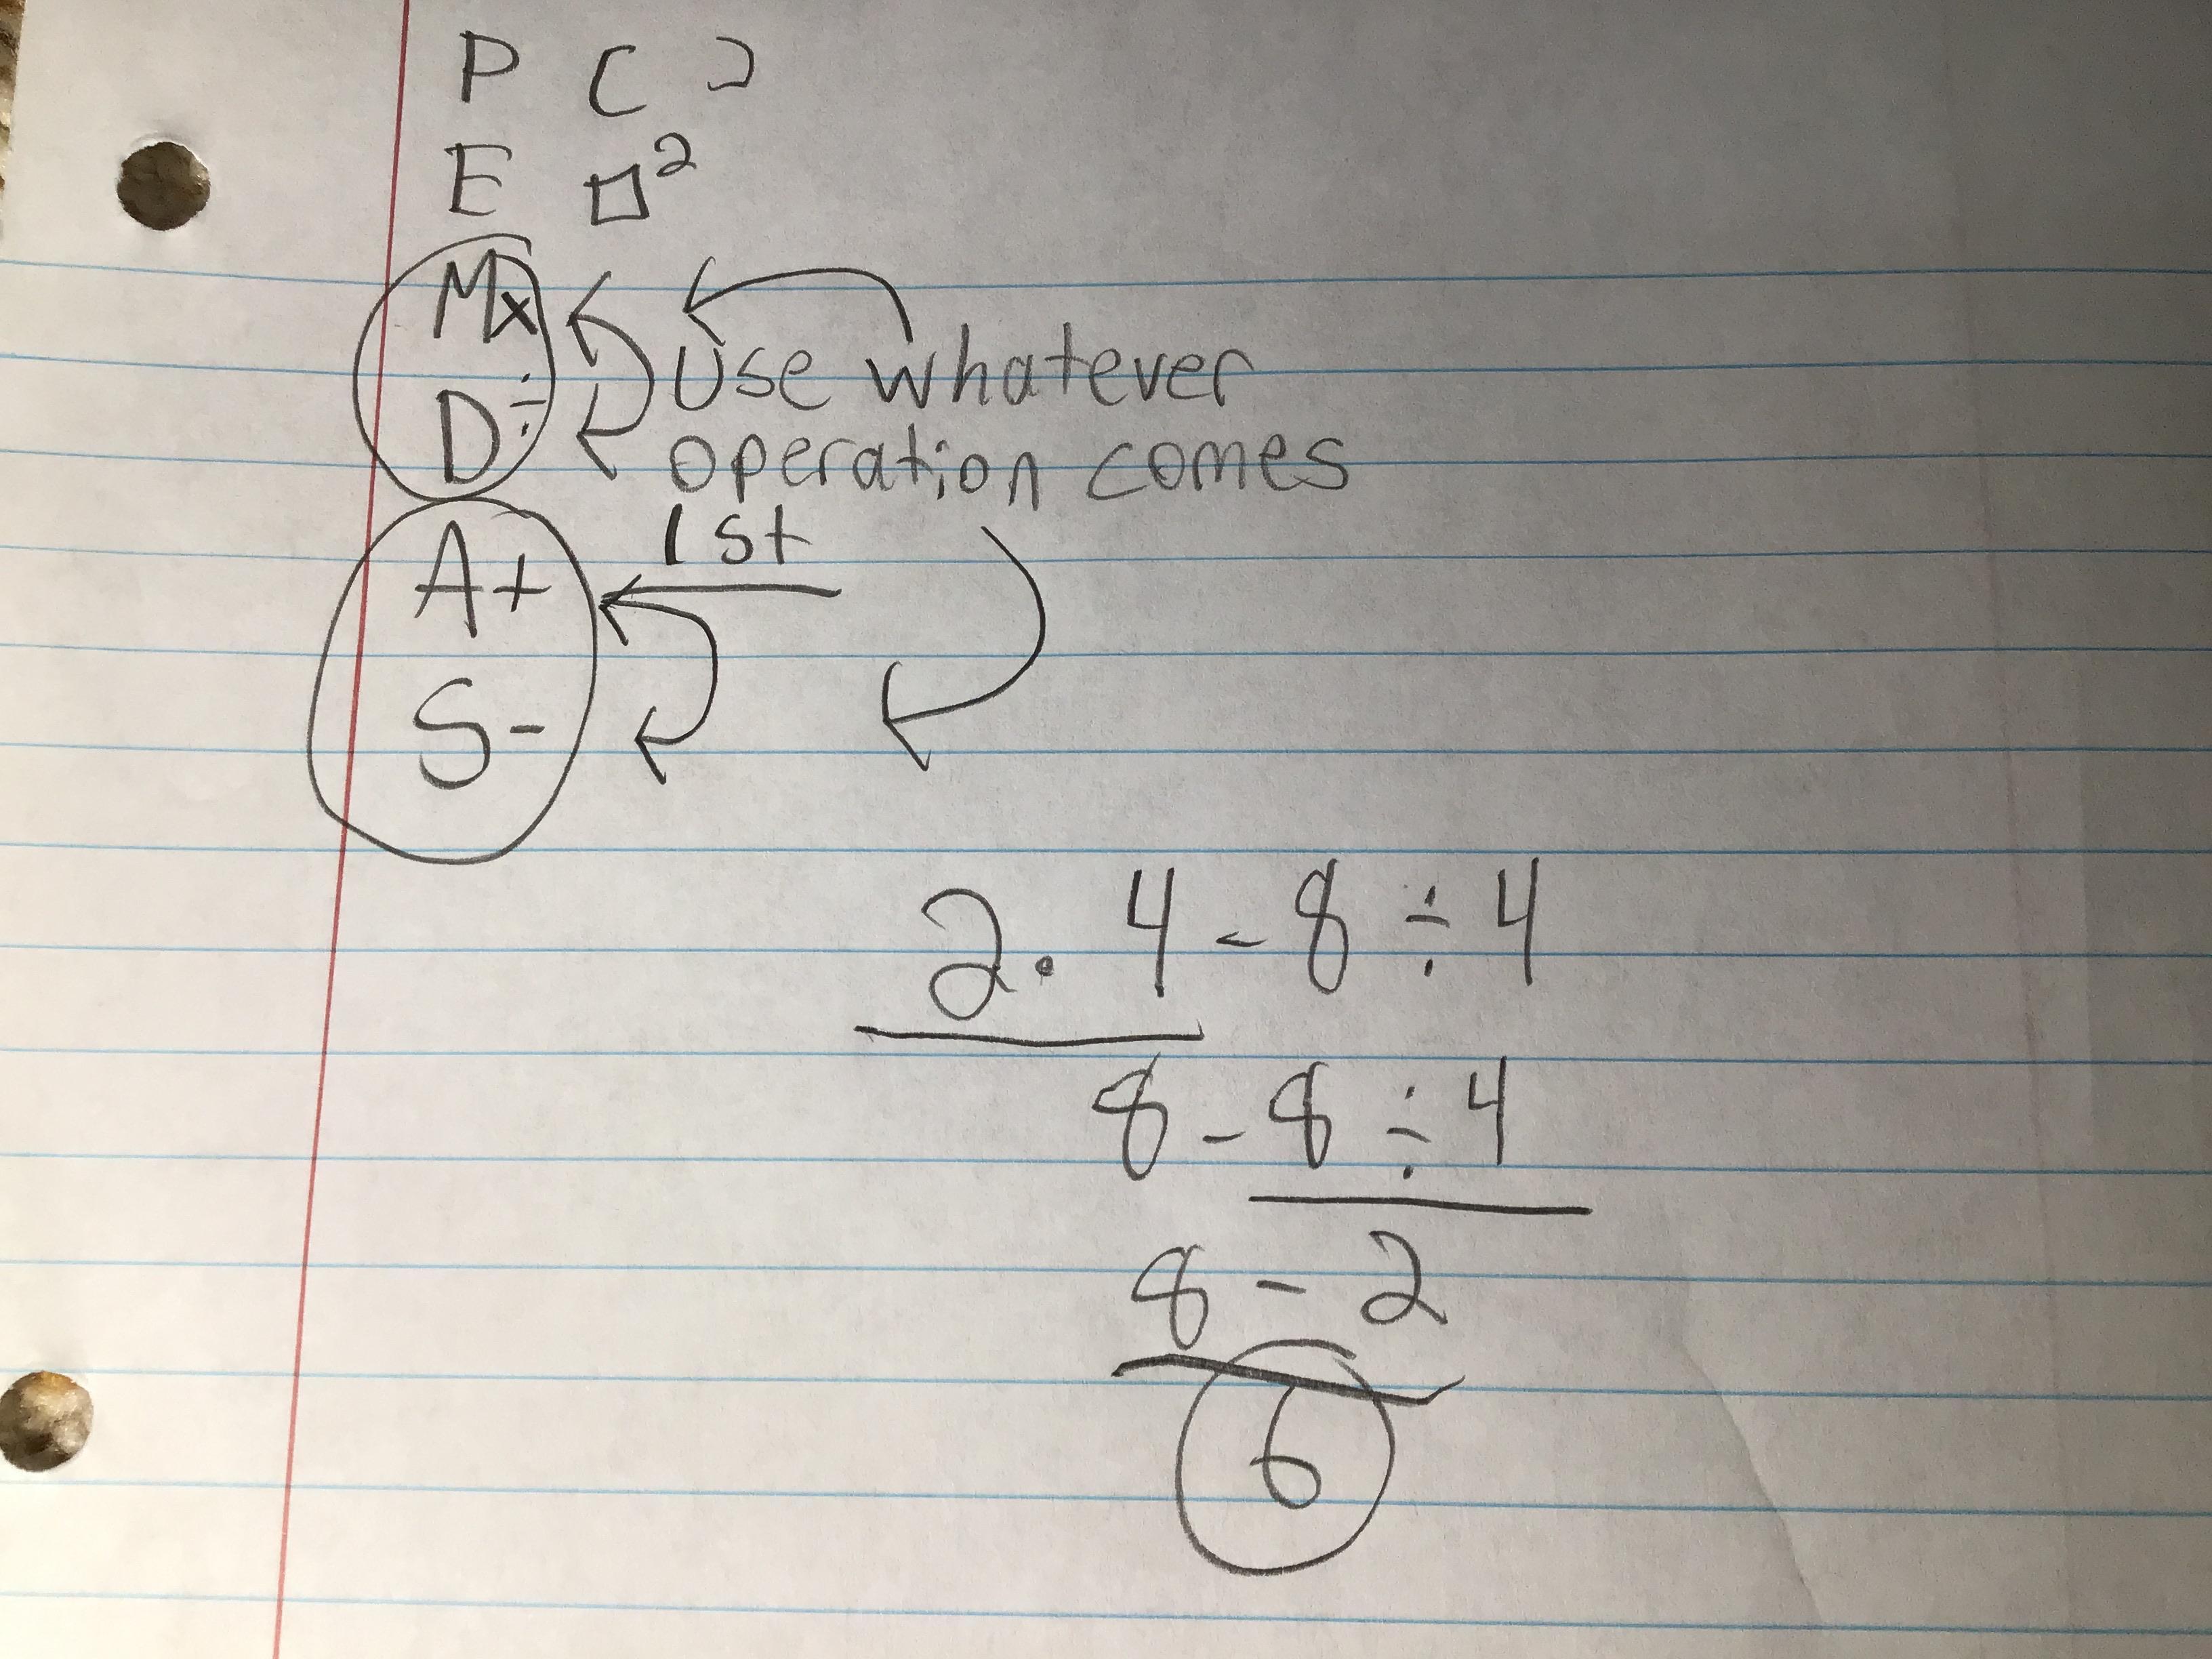 P ( )
E □²
Mx
D÷
Use whatever
operation comes
1st
A+
S-
2 · 4 - 8 ÷ 4
8 - 8 ÷ 4
8 - 2
6